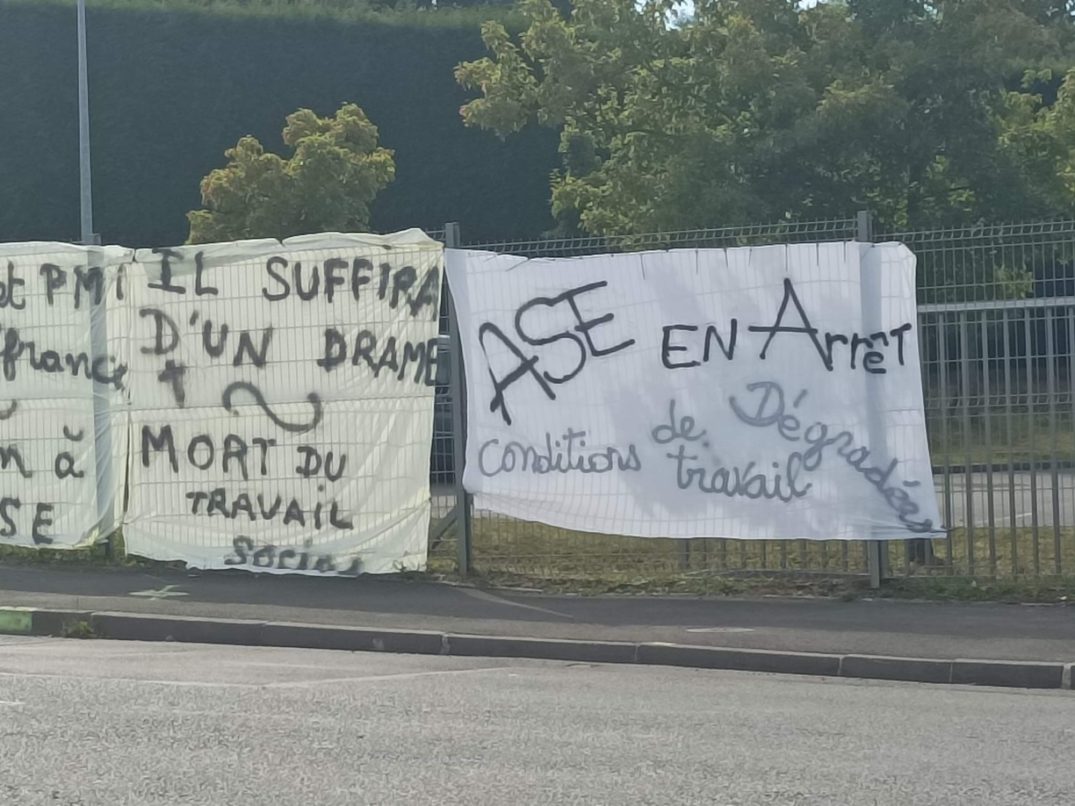 et PMI
n à
SE
IL SUFFIRA
D'UN DRAME
MORT DU
TRAVAIL
Social
ASE EN Arrêt
conditions de travail Dégradées